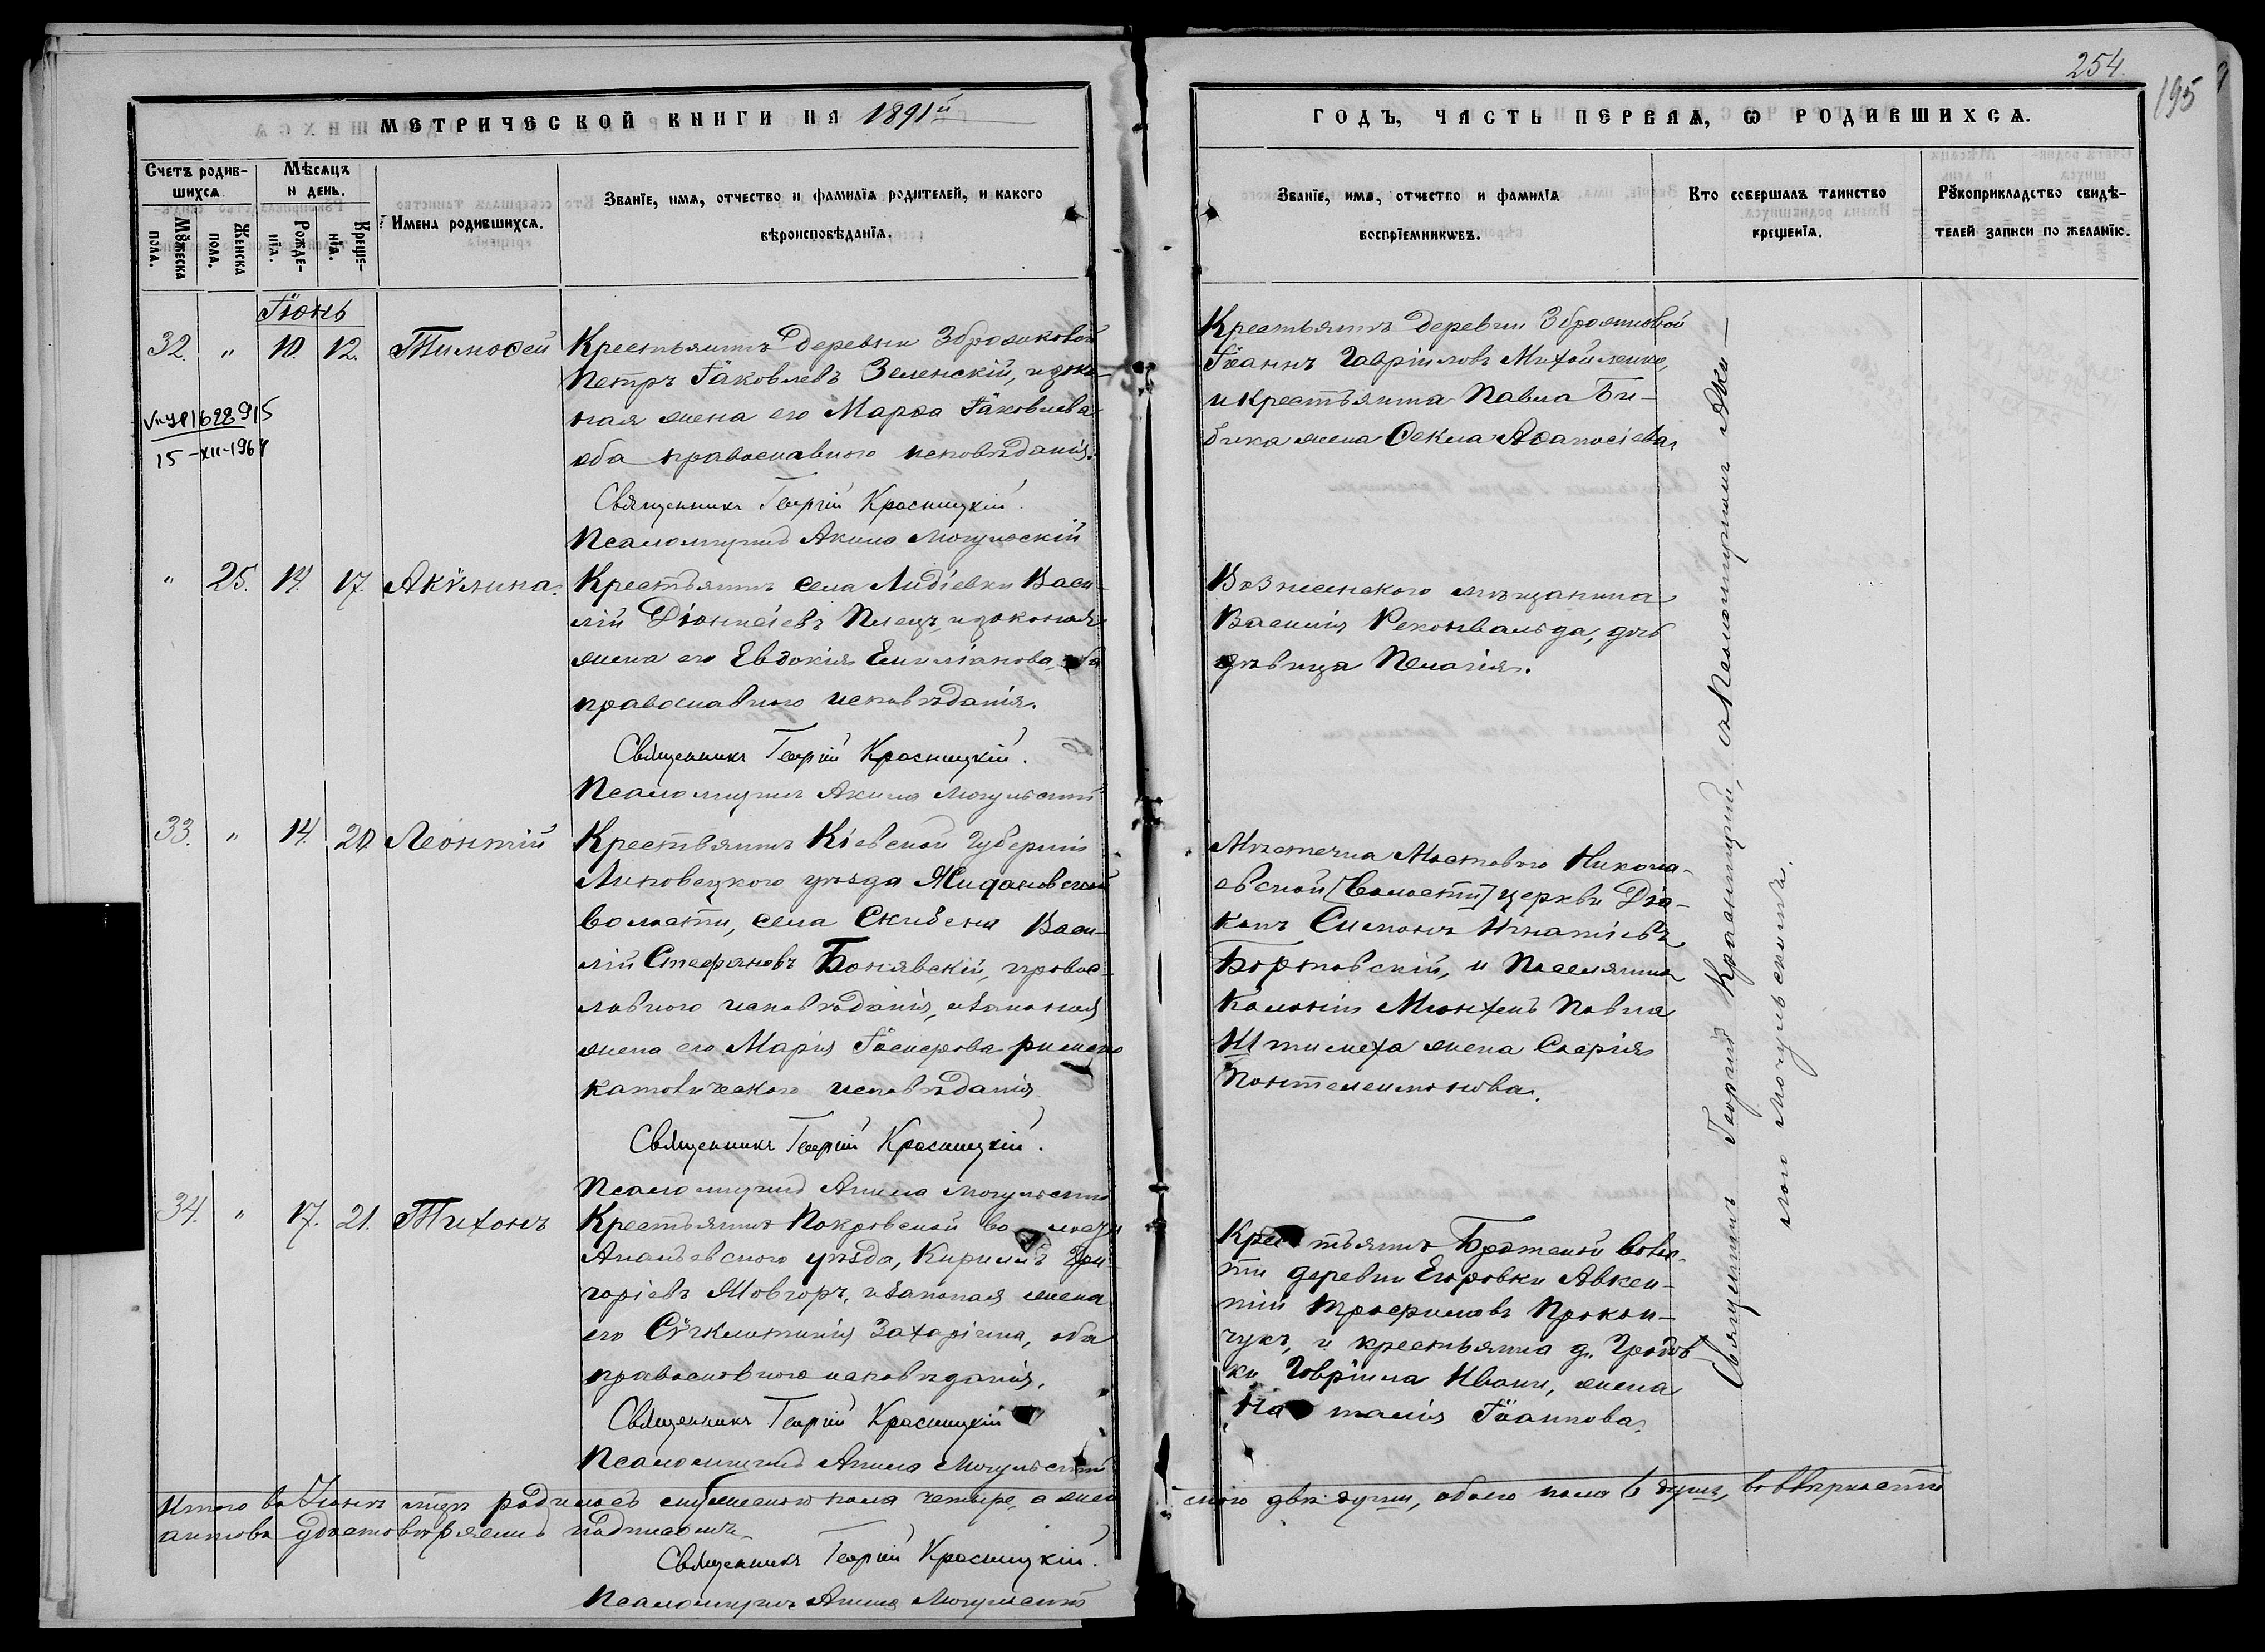 254
195
МЕТРИЧЕСКОЙ КНИГИ НА 1891й
ГОДЪ, ЧАСТЬ ПЕРВАѦ, Ѡ РОДИВШИХСѦ.
Счетъ родив-
шихсѧ
Мѣсѧцъ
и день.
Мꙋжеска
пола.
Женска
пола.
Рожде-
нїѧ.
Креще-
нїѧ.
Имена родившихсѧ.
Званїе, имѧ, отчество и фамилїѧ родителей, и какого
вѣроисповѣданїѧ.
Званїе, имѧ, отчество и фамилїѧ
воспрїемникѡвъ.
Кто совершалъ таинство
крещенїѧ.
Рꙋкоприкладство свидѣ-
телей записи по желанїю.
Іюнь
32. " 10. 12. Тимофей
15-XII-196
Крестьянинъ деревни Зброшковой
Петръ Іаковлевъ Зеленскій, и зако-
ная жена его Марѳа Іаковлева
оба православного исповѣданія.
Священникъ Георгій Красницкій.
Псаломщикъ Акила Могульскій
Крестьянинъ деревни Зброшковой
Іоаннъ Гавріиловъ Михайленко,
и крестьянина Павла Би-
бика жена Ѳекла Аѳанасіева,
" 25. 14. 17. Акѵлина.
Крестьянинъ села Лидіевки Васи-
лій Діонисіевъ Плецъ, и законная
жена его Евдокія Емиліанова, оба
православного исповѣданія.
Священникъ Георгій Красницкій.
Псаломщикъ Акила Могульскій
Вознесенского мѣщанина
Василія Реконвальда, дочь
дѣвица Пелагія.
33. " 14. 20 Леонтій
Крестьянинъ Кіевской Губерніи
Липовецкого уѣзда Жидановской
волости, села Скибена Васи-
лій Стефановъ Бонявскій, правос-
лавного исповѣданія, и законная
жена его Марія Іосифова римско
католического исповѣданія
Священникъ Георгій Красницкій.
Псаломщикъ Акила Могульскій
Мѣстечка Мостового Никола-
евской [волости] церкви Діа-
конъ Симеонъ Игнатіевъ
Бортовскій, и Поселянина
Колоніи Мюнхенъ Павла
жена Софія
Пантелеимонова.
34. " 17. 21. Тихонъ
Крестьянинъ Покровской волости
Ананьевского уѣзда, Кириллъ Гри-
горіевъ Шовгоръ, и законая жена
его Сѵнклитикія Захаріина, оба
православного исповѣданія.
Священникъ Георгій Красницкій
Псаломщикъ Акила Могульскій
Крестьянинъ Братской волос-
ти деревни Егоровки Авксен-
тій Трофимовъ Прокоп-
чукъ, и крестьянина д. Градов-
ки Гавріила Ивани, жена
Наталія Іоаннова.
Священникъ Георгій Красницкій, съ Псаломщикомъ Аки-
лою Могульскимъ.
Итого въ Іюнѣ м-цѣ родилось мужеского пола четыре, а жен
ского двѣ души, обоего пола 6 душъ, въ вѣрности
актовъ удостовѣряемъ подписомъ
Священникъ Георгій Красницкій.
Псаломщикъ Акила Могульскій